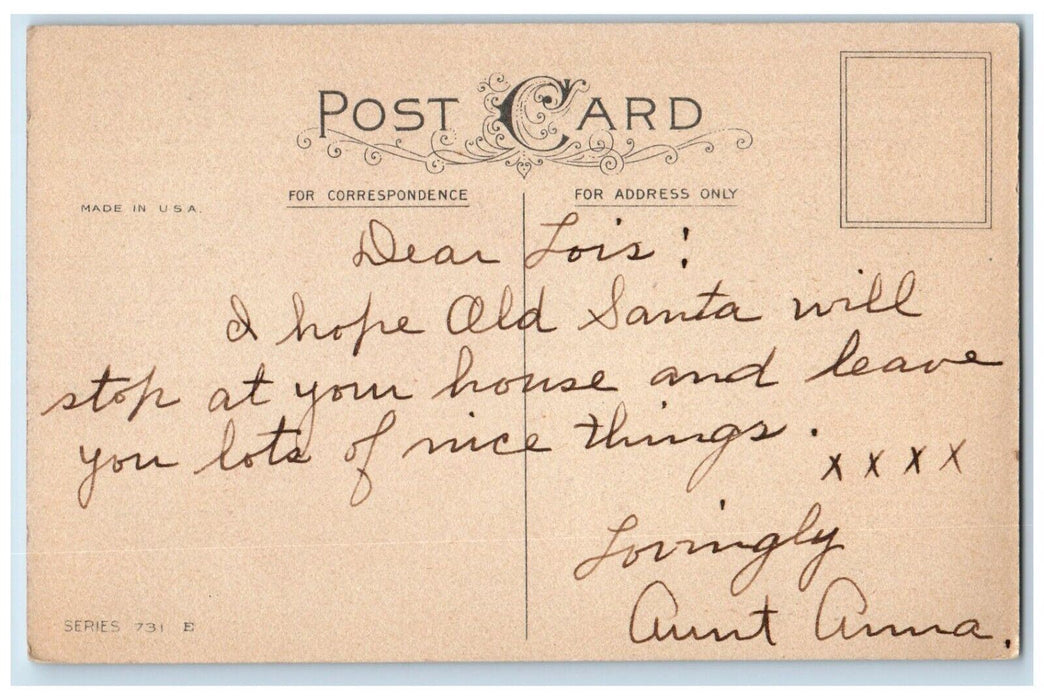 POST CARD
FOR CORRESPONDENCE
FOR ADDRESS ONLY
MADE IN U.S.A.
Dear Lois:
I hope Old Santa will
stop at your house and leave
you lots of nice things.
x x x x
Lovingly
Aunt Anna.
SERIES 731 E